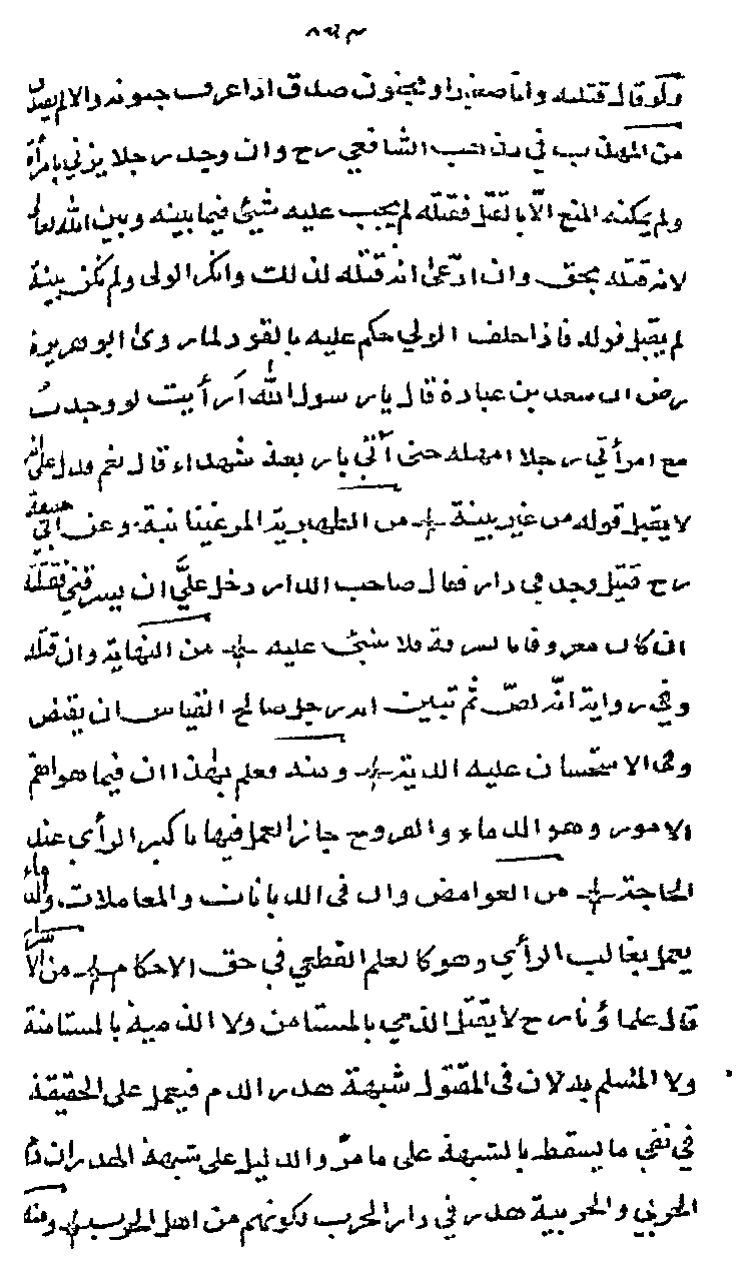 ولو قال قتلته وانا صغير او مجنون صدق اذا عرف جنونه والا لم يصدق
من المهذب في مذهب الشافعي رح وان وجد رجلا يزني بامرأة
ولم يمكنه المنع الّا بالقتل فقتله لم يجب عليه شيئ فيما بينه وبين الله تعالى
لانه قتله بحق وان ادّعى انه قتله لذلك وانكر الولى ولم تكن بينة
لم يقبل قوله فاذا حلف الولي حكم عليه بالقود لما روى ابو هريرة
رض ان سعد بن عبادة قال يا رسول الله أرأيت لو وجدت
مع امرأتي رجلا امهله حتى آتي باربعة شهداء قال نعم فدل على انه
لا يقبل قوله من غير بينة من الظهيرية المرغينانية وعن ابي حنيفة
رح قتيل وجد في دار فقال صاحب الدار دخل عليَّ ان يسرقني فقتلته
ان كان معروفا بالسرقة فلا شئ عليه من النهاية وان قتله
وفي رواية انّه لصّ ثم تبين انه رجل صالح القياس ان يقتص
وفى الاستحسان عليه الدية ومنه فعلم بهذا ان فيما هو اهم
الامور وهو الدماء والفروج جاز العمل فيها باكبر الرأي عند
الحاجة من الغوامض وان فى الديانات والمعاملات والدماء
يعمل بغالب الرأي وهو كالعلم القطعي في حق الاحكام من الاسرار
قال علماؤنا رح لا يقتل الذمي بالمستامن ولا الذمية بالمستامنة
ولا المسلم به لان فى المقتول شبهة هدر الدم فيعمل على الحقيقة
في نفي ما يسقط بالشبهة على ما مرّ والدليل على شبهة الهدر ان دم
الحربي والحربية هدر في دار الحرب لكونهم من اهل الحرب ومنه